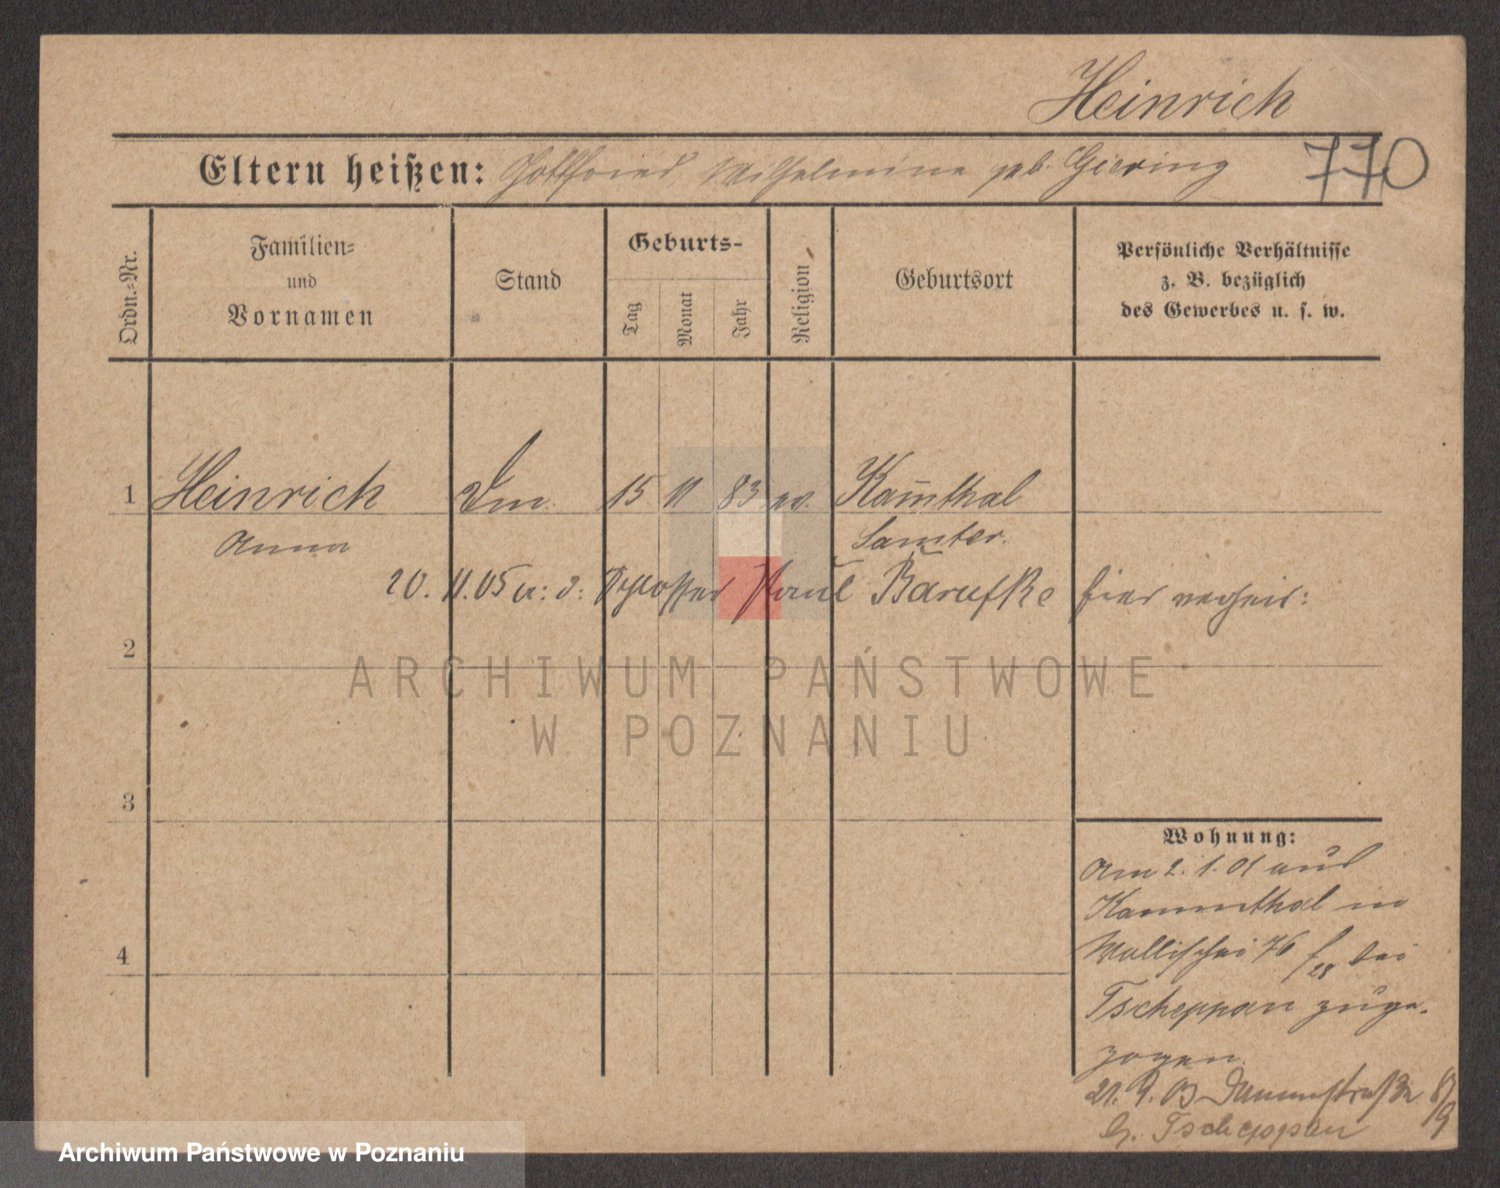 Heinrich
Eltern heißen: Gottfried, Wilhelmine geb. Giering 770
Ordn.-Nr.
Familien-
und
Vornamen
Stand
Geburts-
Tag
Monat
Jahr
Religion
Geburtsort
Persönliche Verhältnisse
z. B. bezüglich
des Gewerbes u. s. w.
1 Heinrich 15 11 83 ev. Kam̅thal
Anna Samter.
20. 11. 05 Schlosser Paul Barufke hier verheir:
2
ARCHIWUM PAŃSTWOWE
W POZNANIU
3
Wohnung:
Am 2. 1. 01 aus
Kammthal in
Wallischei 76 bei
4
Tscheppan zuge-
zogen
21. 9. 03 Dammstraße
b. Tscheppan
Archiwum Państwowe w Poznaniu